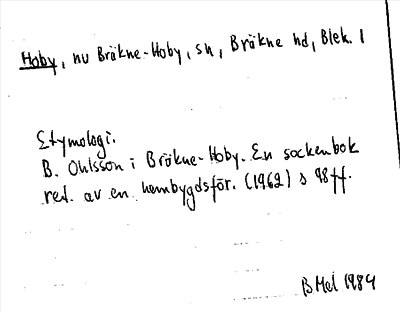 Hoby, nu Bräkne-Hoby, sn, Bräkne hd, Blek. l
Etymologi.
B. Ohlsson i Bräkne-Hoby. En sockenbok
red. av en hembygdsför. (1962) s 98 ff.
B Mel 1984